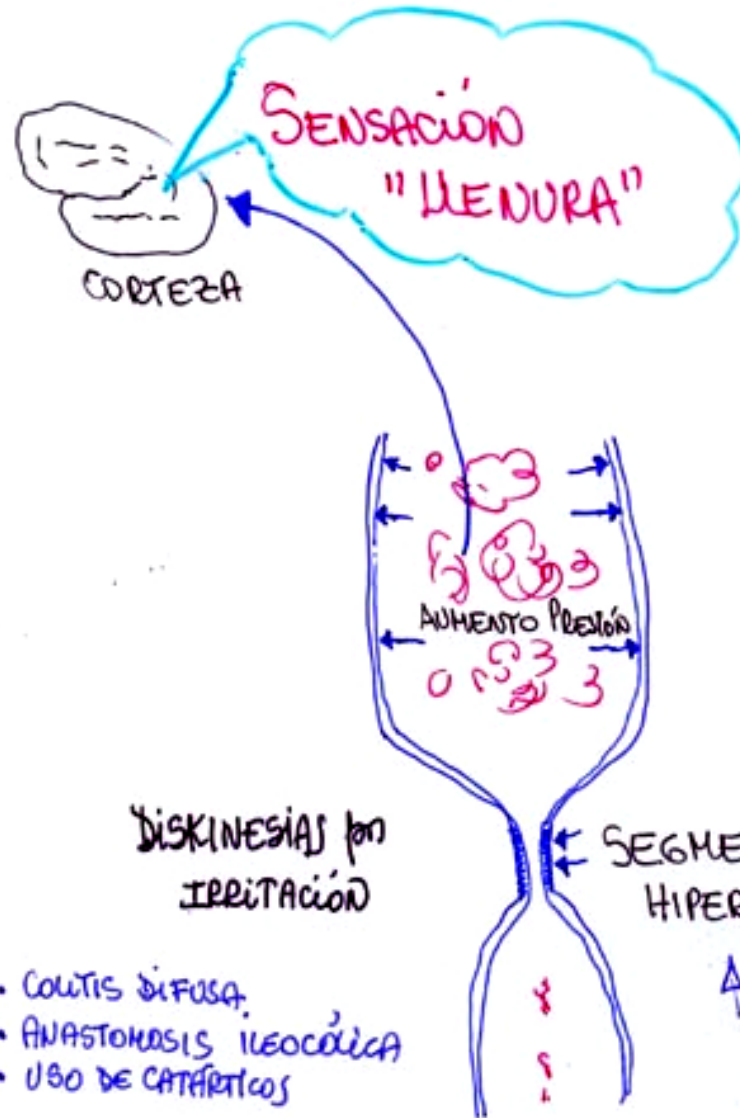 SENSACIÓN
"LLENURA"
CORTEZA
AUMENTO PRESIÓN
DISKINESIAS por
IRRITACIÓN
SEGME
HIPER
• COLITIS DIFUSA.
• ANASTOMOSIS ILEOCÓLICA
• USO DE CATÁRTICOS